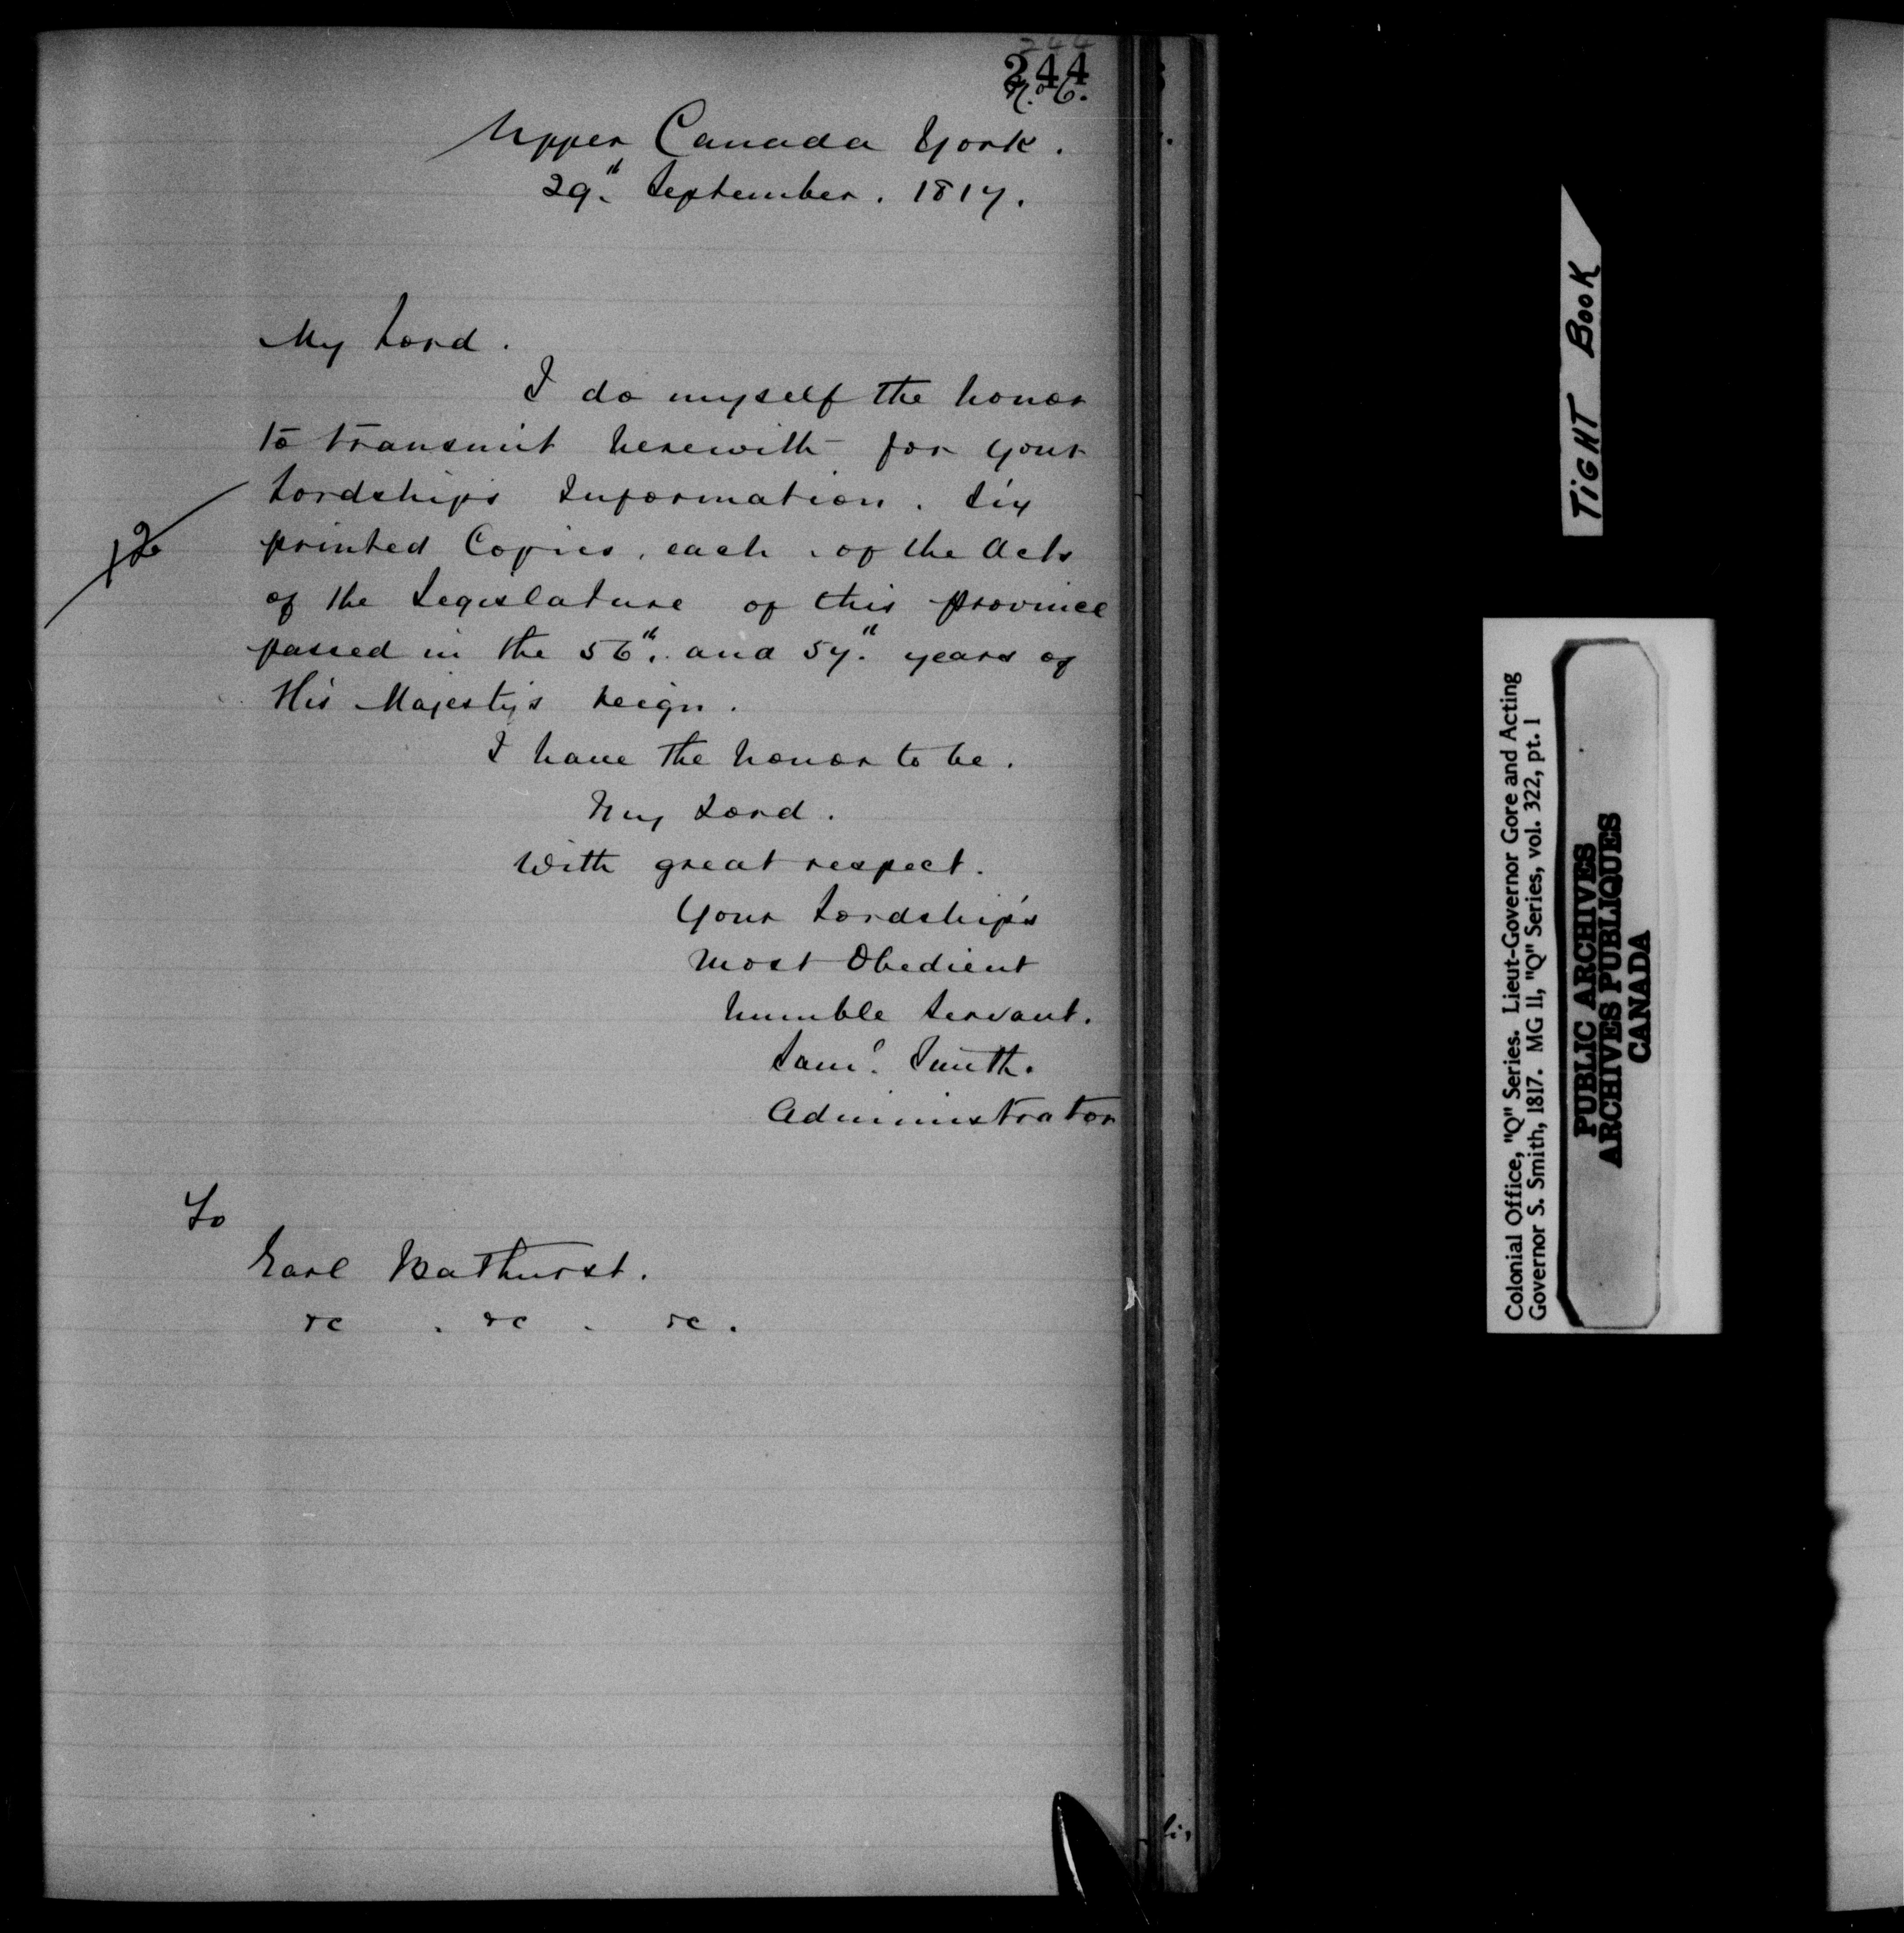 244
244
No. 6.
Upper Canada York.
29th September. 1817.
My Lord.
I do myself the honor
to transmit herewith for your
Lordship's Information. Six
12
printed Copies, each, of the Acts
of the Legislature of this province
passed in the 56th. and 57th. years of
His Majesty's reign.
I have the honor to be.
My Lord.
With great respect.
Your Lordship's
Most Obedient
humble Servant.
Saml. Smith.
Administrator
To
Earl Bathurst.
&c . &c . &c.
TIGHT BOOK
Colonial Office, "Q" Series. Lieut-Governor Gore and Acting
Governor S. Smith, 1817. MG 11, "Q" Series, vol. 322, pt. 1
PUBLIC ARCHIVES
ARCHIVES PUBLIQUES
CANADA